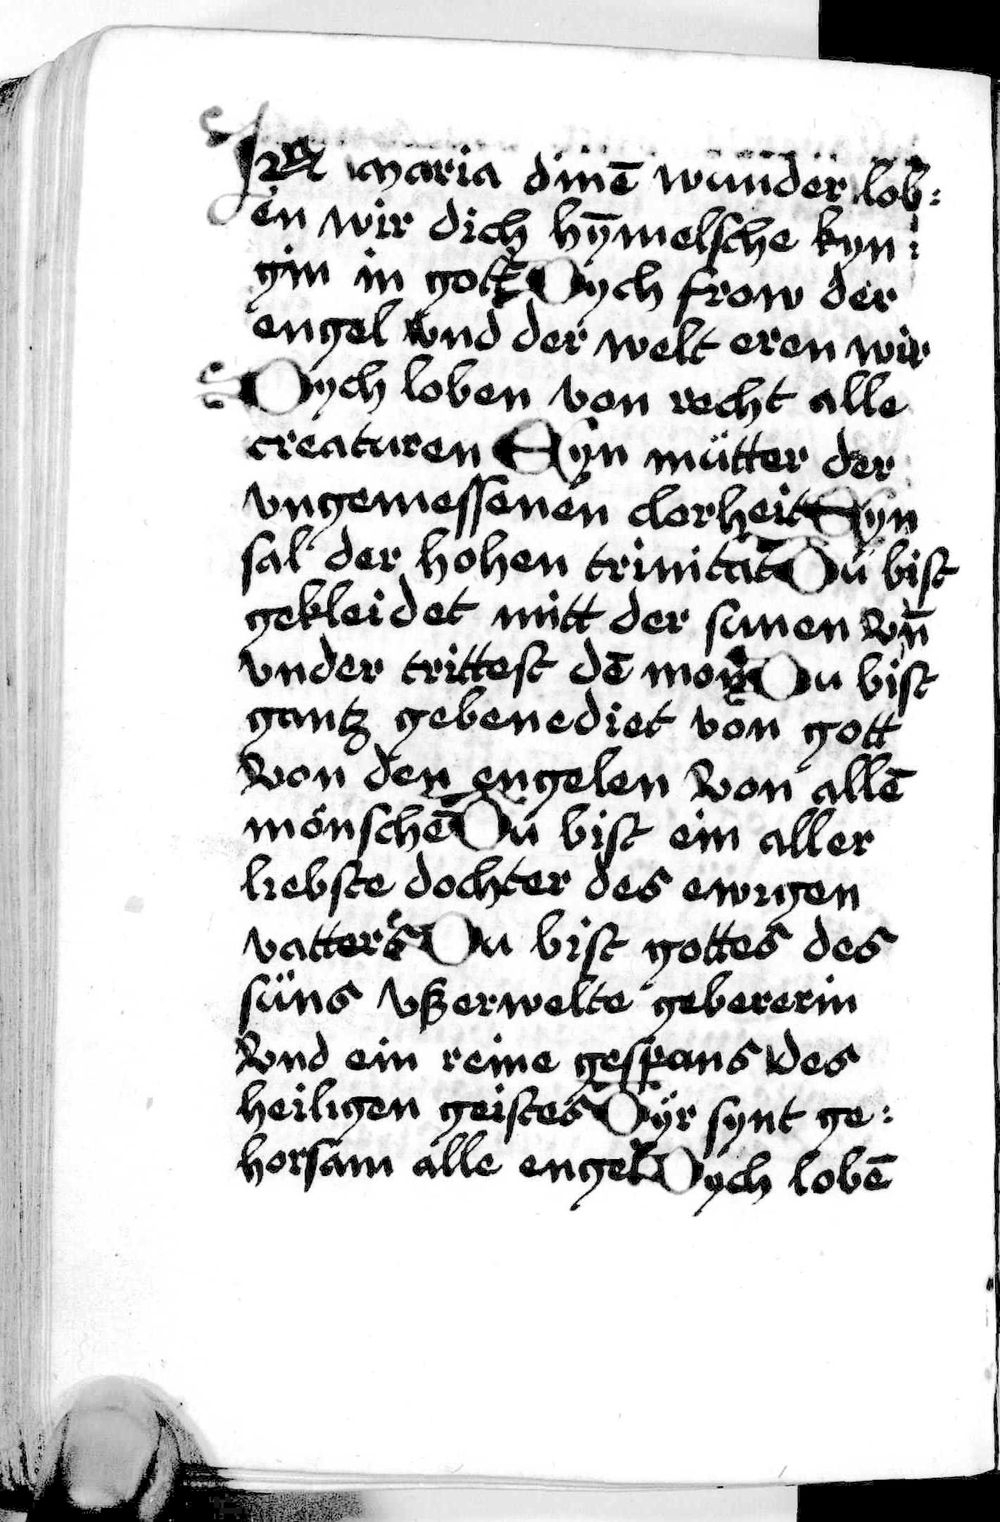 In maria dinē wunder lob:
en wir dich hȳmelsche kyn:
gin in gott Dych frow der
engel vnd der welt eren wir
Dych loben von recht alle
creaturen Eyn můtter der
vngemessenen clorheit Eyn
sal der hohen trinitat Du bist
gekleidet mitt der sunen vn̄
vnder trittest dē mon Du bist
gantz gebenediet von gott
von den engelen von allē
mönschē Du bist ein aller
liebste dochter des ewigen
vatters Du bist gottes des
süns vßerwelte gebererin
vnd ein reine gespans des
heiligen geistes Dÿr synt ge:
horsam alle engel Dych lobē